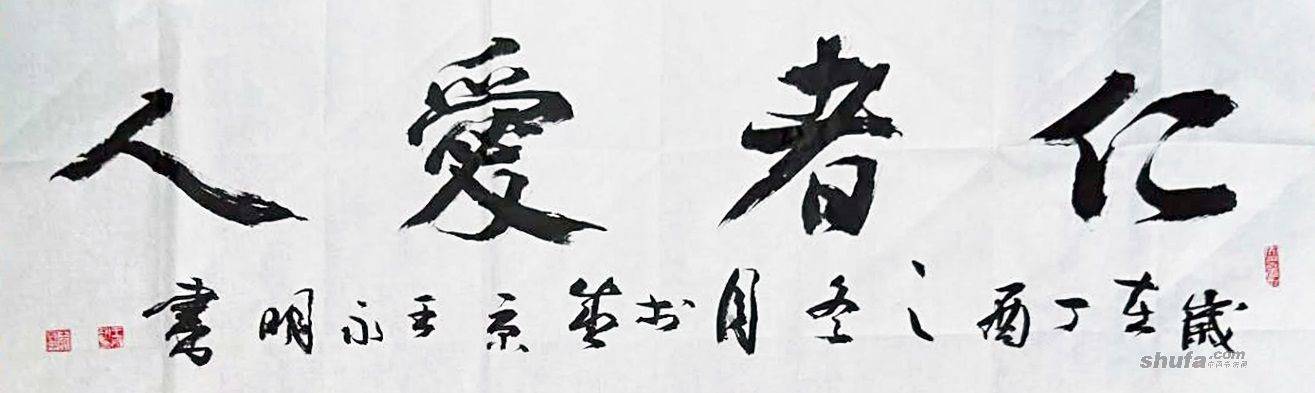 仁者愛人
歲在丁酉之冬月於燕京王永明書
shufa.com